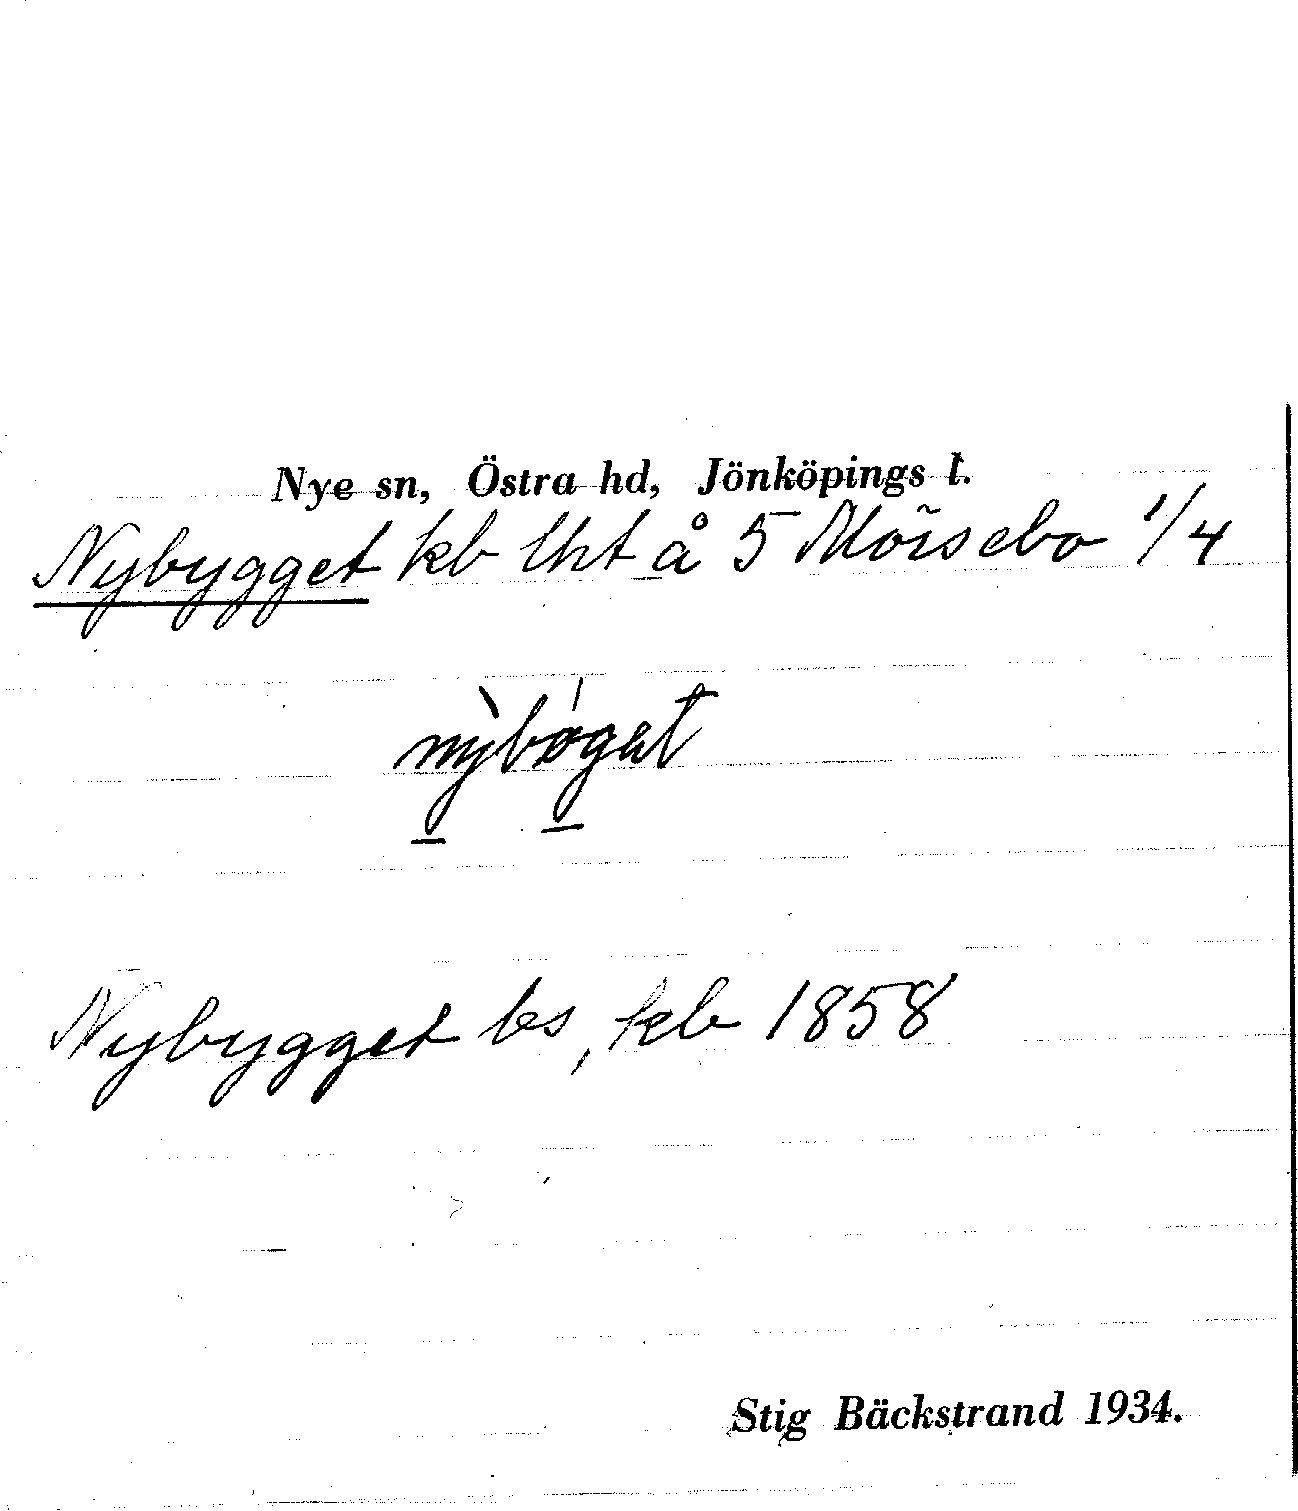 Nye sn, Östra hd, Jönköpings l.
Nybygget kb lht å 5 Moïsebo 1/4
nỳbøget
Nybygget bs, kb 1858
Stig Bäckstrand 1934.